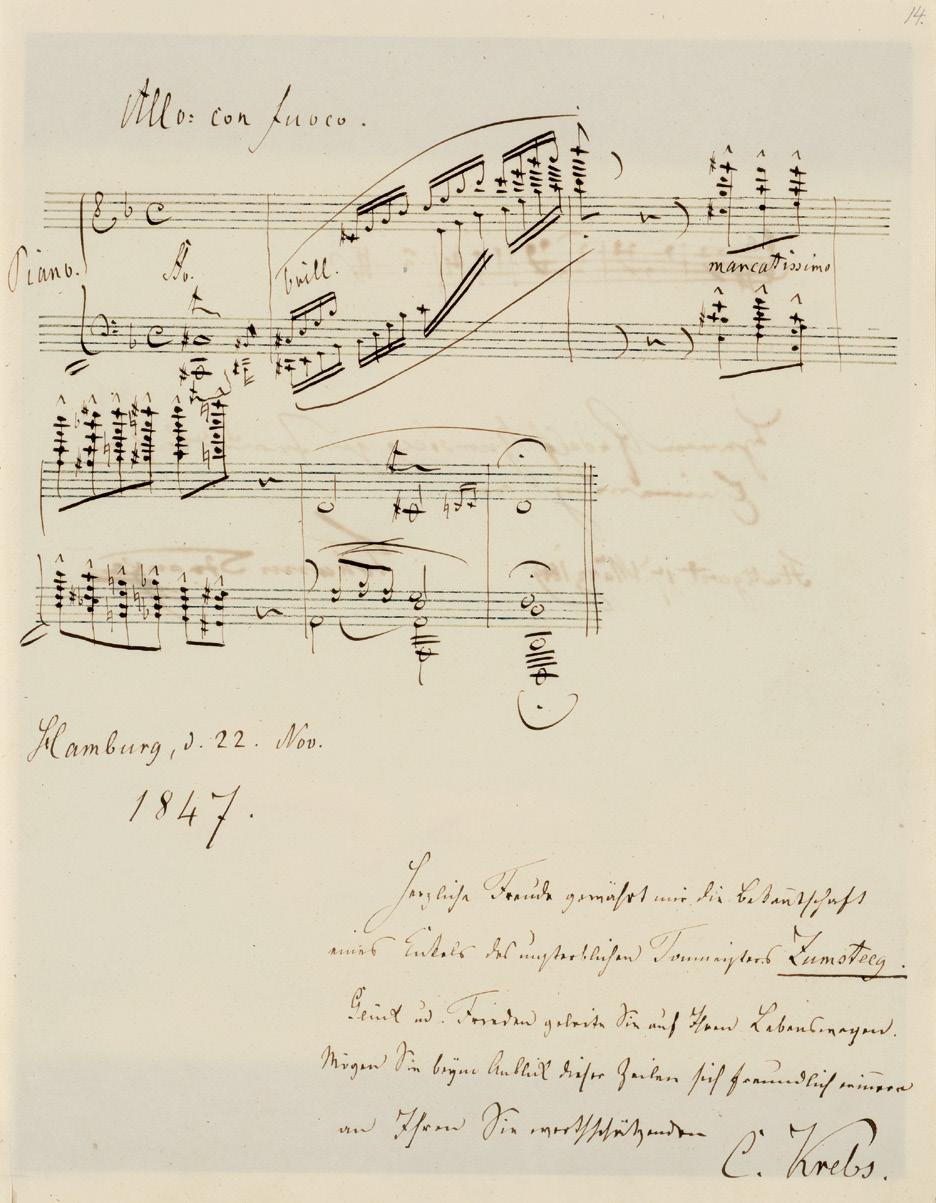 14.
Allo: con fuoco.
Piano.
brill.
marcatissimo
Hamburg, d. 22. Nov.
1847.
Herzliche Freude gewährt mir die Bekan̄tschaft
eines Enkels des unsterblichen Tonmeisters Zumsteeg.
Glück ud. Frieden geleite Sie auf Ihren Lebenswegen.
Mögen Sie beym Anblick dieser Zeilen sich freundlich erinnern
an Ihren Sie werthschätzenden
C. Krebs.